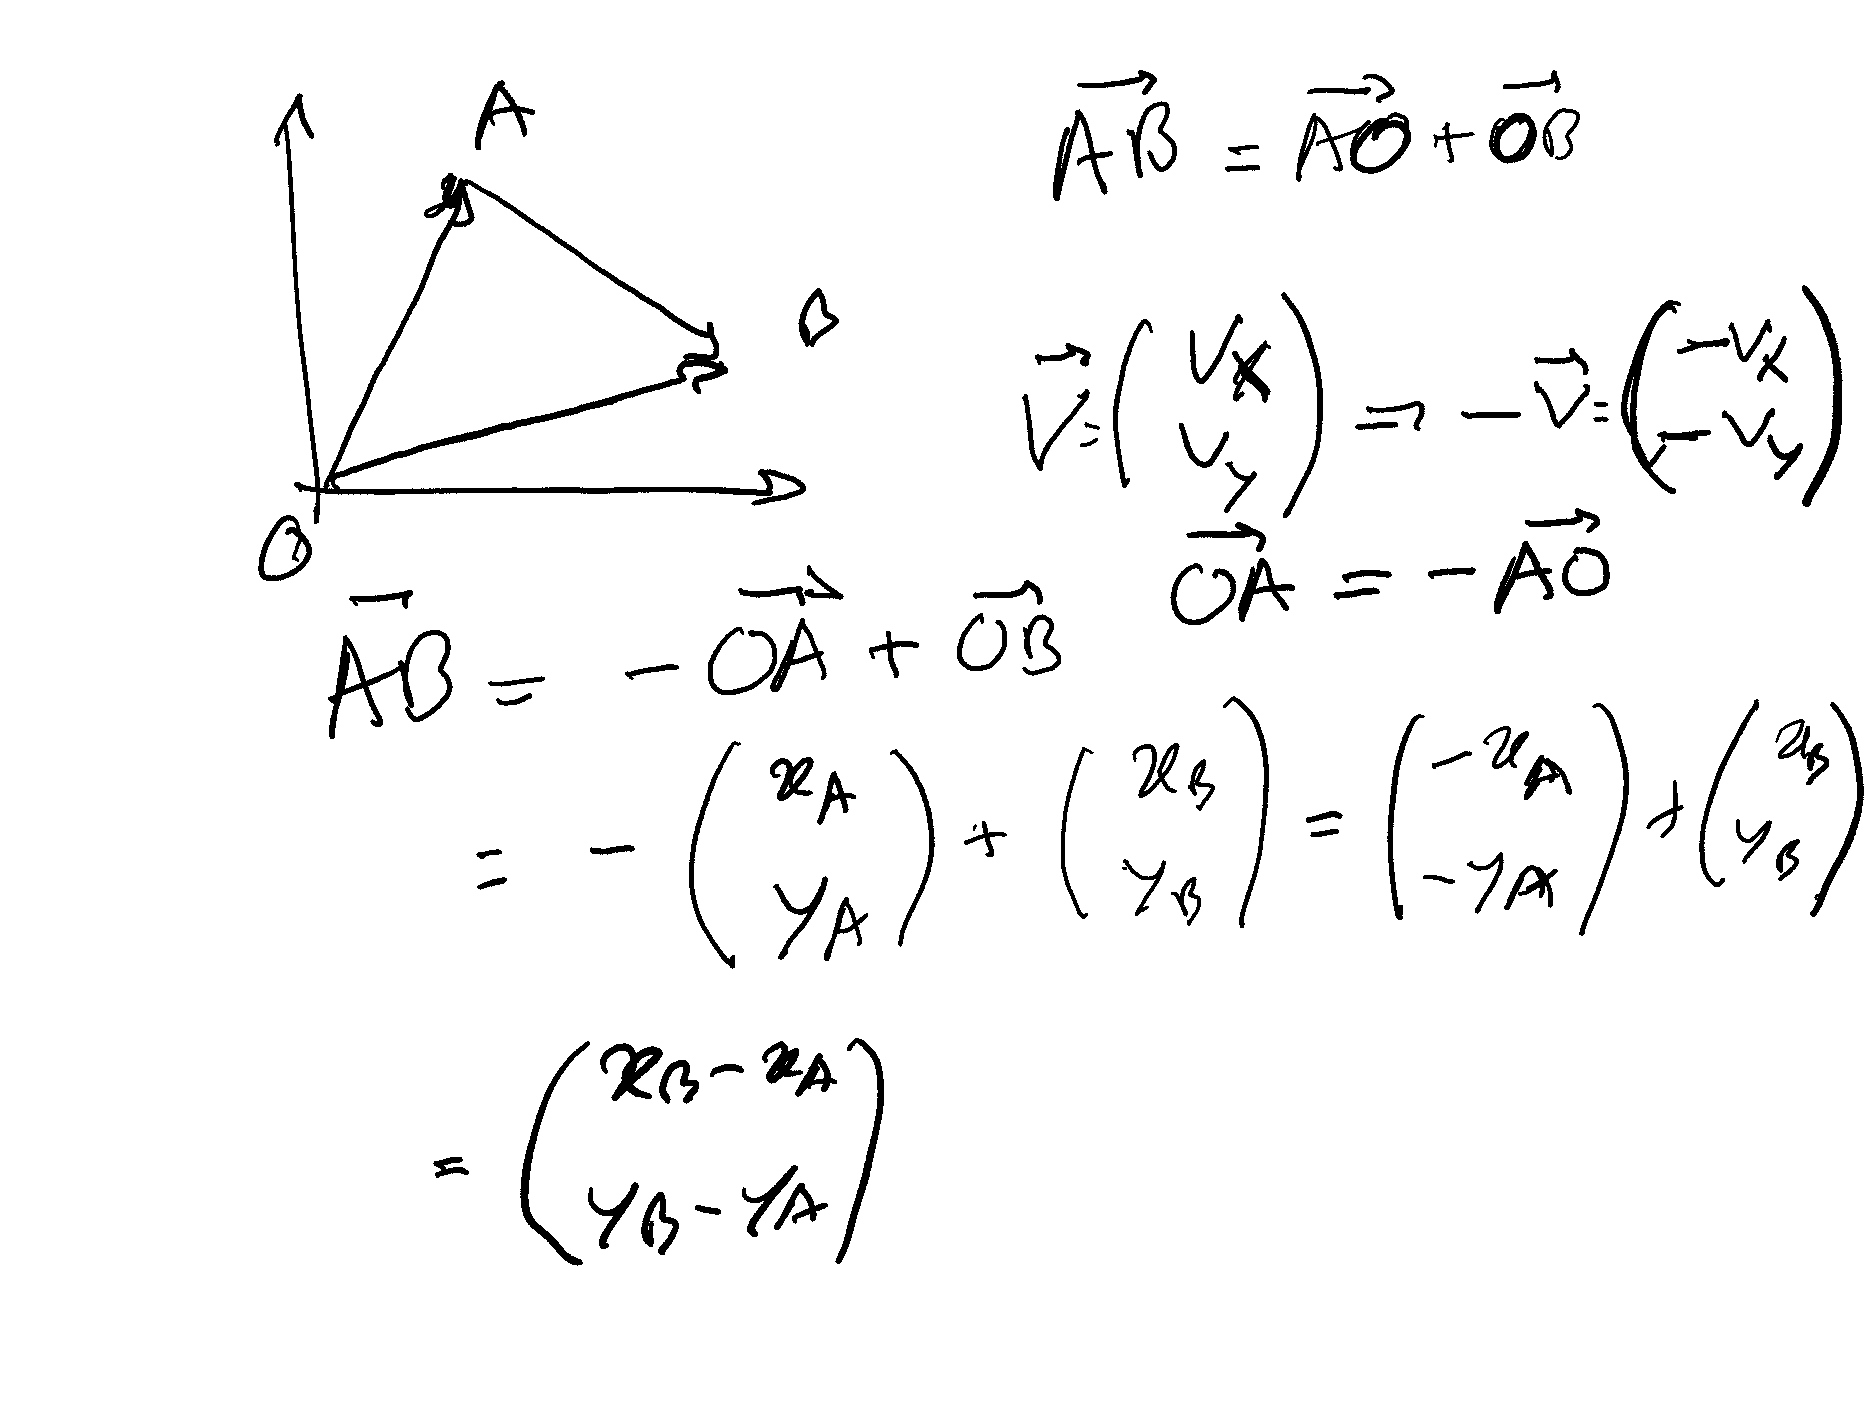 A
B
O
\overrightarrow{AB} = \overrightarrow{AO} + \overrightarrow{OB}
\vec{V} = \begin{pmatrix} V_x \\ V_y \end{pmatrix} \Rightarrow -\vec{V} = \begin{pmatrix} -V_x \\ -V_y \end{pmatrix}
\overrightarrow{OA} = -\overrightarrow{AO}
\overrightarrow{AB} = -\overrightarrow{OA} + \overrightarrow{OB}
= -\begin{pmatrix} x_A \\ y_A \end{pmatrix} + \begin{pmatrix} x_B \\ y_B \end{pmatrix} = \begin{pmatrix} -x_A \\ -y_A \end{pmatrix} + \begin{pmatrix} x_B \\ y_B \end{pmatrix}
= \begin{pmatrix} x_B - x_A \\ y_B - y_A \end{pmatrix}